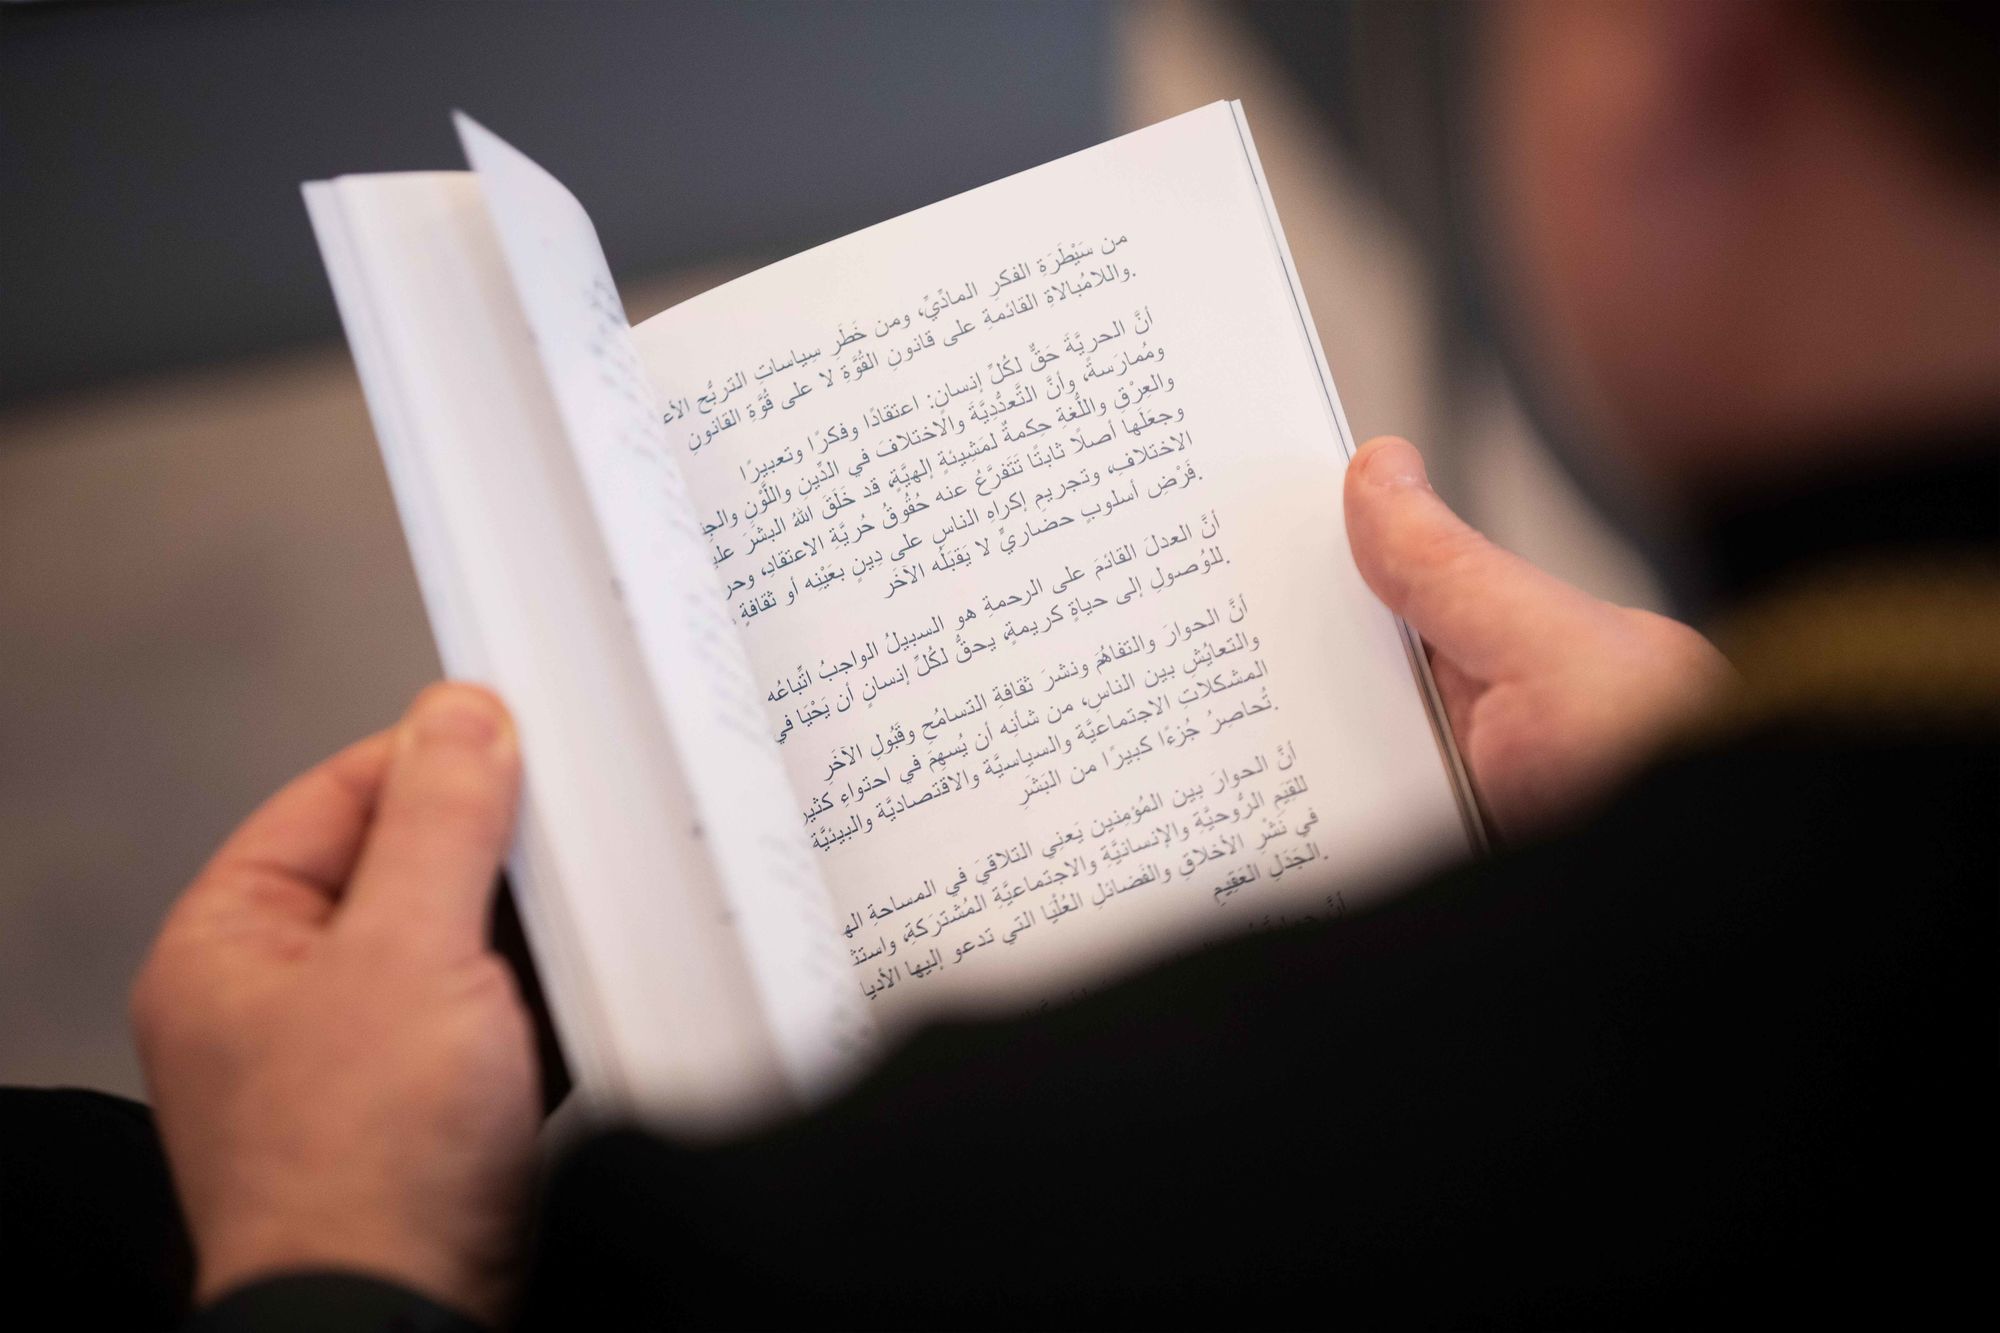 من سَيْطَرَةِ الفكرِ المادِّيِّ، ومن خَطَرِ سِياساتِ التربُّحِ
واللامُبالاةِ القائمةِ على قانونِ القُوَّةِ لا على قُوَّةِ القانونِ.
أنَّ الحريَّةَ حَقٌّ لكُلِّ إنسانٍ: اعتقادًا وفكرًا وتعبيرًا
ومُمارَسةً، وأنَّ التَّعدُّدِيَّةَ والاختلافَ في الدِّينِ واللَّوْنِ
والعِرْقِ واللُّغةِ حِكمةٌ لمَشِيئةٍ إلهيَّةٍ، قد خَلَقَ اللهُ البشَرَ
وجعَلَها أصلًا ثابتًا تَتَفرَّعُ عنه حُقُوقُ حُريَّةِ الاعتقادِ،
الاختلافِ، وتجريمِ إكراهِ الناسِ على دِينٍ بعَيْنِه أو ثقافةٍ
فَرْضِ أسلوبٍ حضاريٍّ لا يَقبَلُه الآخَر.
أنَّ العدلَ القائمَ على الرحمةِ هو السبيلُ الواجبُ اتِّباعُه
للوُصولِ إلى حياةٍ كريمةٍ، يحقُّ لكُلِّ إنسانٍ أن يَحْيَا في
أنَّ الحوارَ والتفاهُمَ ونشرَ ثقافةِ التسامُحِ وقَبُولِ الآخَرِ
والتعايُشِ بين الناسِ، من شأنِه أن يُسهِمَ في احتواءِ
المشكلاتِ الاجتماعيَّة والسياسيَّة والاقتصاديَّة والبيئيَّة
تُحاصِرُ جُزءًا كبيرًا من البَشَرِ.
أنَّ الحوارَ بين المُؤمِنين يَعنِي التلاقيَ في المساحةِ
للقِيَمِ الرُّوحيَّةِ والإنسانيَّةِ والاجتماعيَّةِ المُشترَكةِ،
في نَشْرِ الأخلاقِ والفَضائلِ العُلْيَا التي تدعو إليها
الجَدَلِ العَقِيمِ.